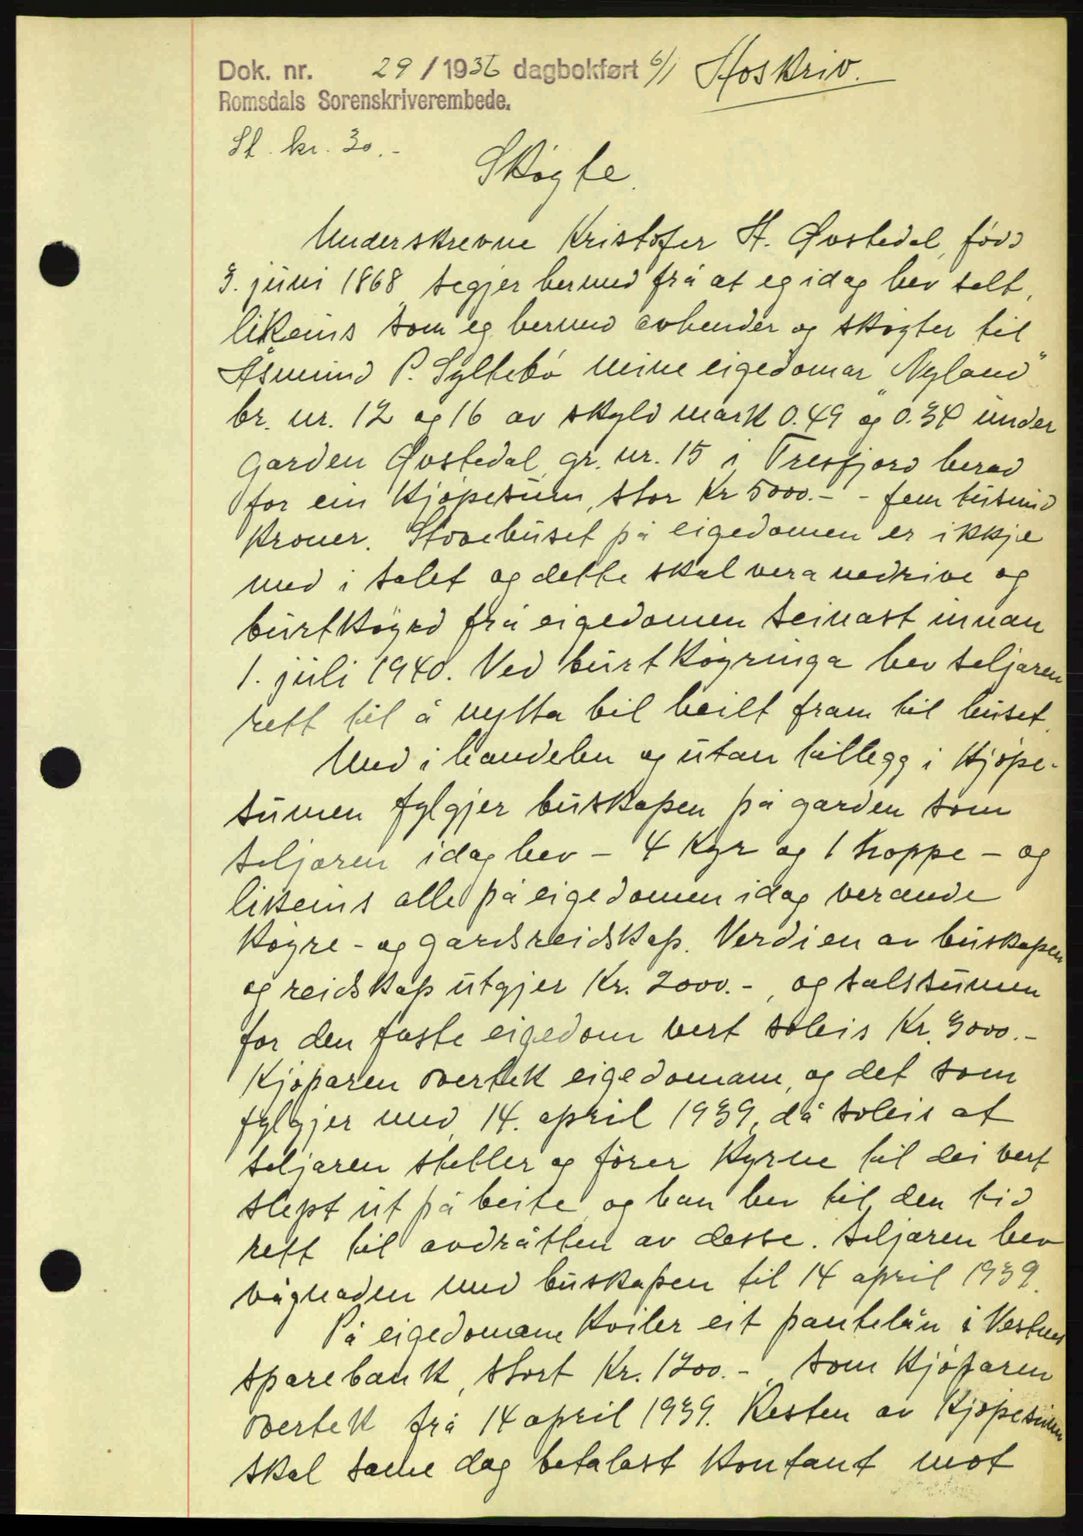 Dok. nr. 29 / 1936 dagbokført 6/1 Hoskriv.
Romsdals Sorenskriverembede.
St. kr. 30.-
Skøyte.
Underskrevne Kristofer H. Øvstedal, fødd
3. juni 1868, segjer hermed frå at eg idag hev selt,
likeins som eg hermed avhender og skøyter til
Åsmund P. Syltebø mine eigedomar "Nyland"
br. nr. 12 og 16 av skyld mark 0.49 og 0.34 under
garden Øvstedal, gr. nr. 15 i Tresfjord herad
for ein kjøpesum, stor kr 5000.- - fem tusund
kroner. Stovehuset på eigedomen er ikkje
med i salet og dette skal vera nedrive og
burtkøyrd frå eigedomen seinast innan
1. juli 1940. Ved burtkøyringa hev seljaren
rett til å nytta bil heilt fram til huset.
Med i handelen og utan tillegg i kjøpe-
sumen fylgjer buskapen på garden som
seljaren idag hev - 4 kyr og 1 hoppe - og
likeins alle på eigedomen idag verande
køyre- og gardsreidskap. Verdien av buskapen
og reidskap utgjer kr. 2000.-, og salssumen
for den faste eigedom vert soleis kr. 3000.-
Kjøparen overtek eigedomane, og det som
fylgjer med, 14. april 1939, då soleis at
seljaren steller og fôrer kyrne til dei vert
slept ut på beite, og han hev til den tid
rett til avdråtten av desse. Seljaren hev
vågnaden med buskapen til 14 april 1939.
På eigedomane kviler eit pantelån i Vestnes
sparebank, stort kr. 1200.-, som kjøparen
overtek frå 14 april 1939. Resten av kjøpesumen
skal same dag betalast kontant mot